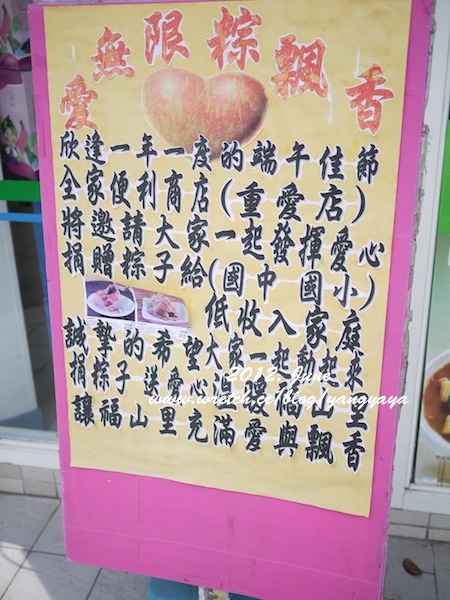 愛無限粽飄香
欣逢一年一度的端午佳節
全家便利商店(重愛店)
將邀請大家一起發揮愛心
捐贈粽子給(國中國小)
低收入家庭
誠摯的希望大家一起動起來
捐粽子送愛心溫暖福山里
讓福山里充滿愛與飄香
2012. June
www.wretch.cc/blog/yangyaya